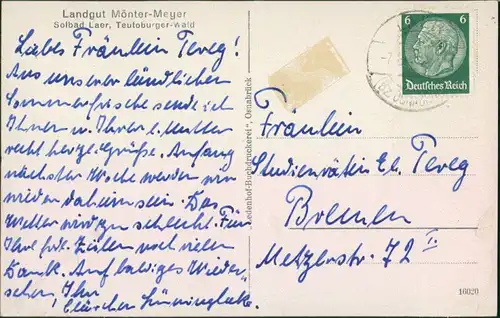 Landgut Mönter-Meyer
Solbad Laer, Teutoburger-Wald
Liebes Fräulein Tereg!
Aus unserer ländlichen
Sommerfrische sende ich
Ihnen u. Ihrer l. Mutter
recht herzl. Grüße. Anfang
nächster Woche werden wir
wieder daheim sein. Das
Wetter wird zu schlecht. Für
Ihre frdl. Zeilen noch vielen
Dank. Auf baldiges Wieder-
sehen, Ihr
Fräulein
Studienrätin El. Tereg
Bremen
Metzerstr. 72 I.
6 6
Deutsches Reich
Ledenhof-Buchdruckerei", Osnabrück
16020